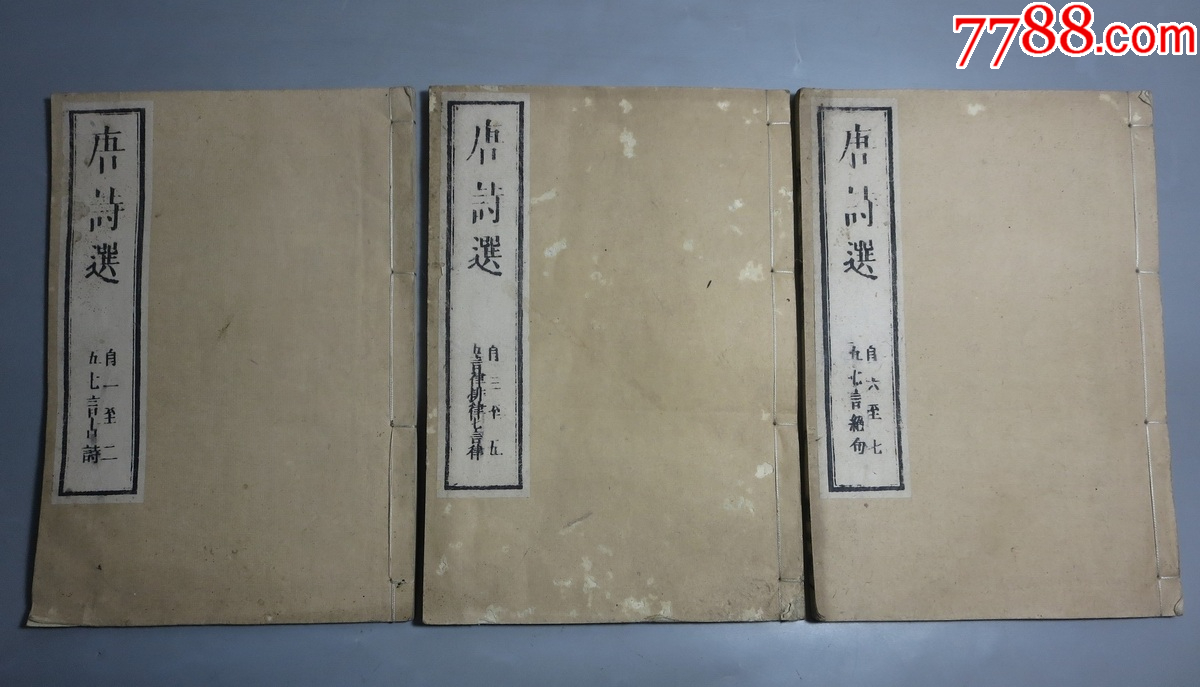 7788.com
唐詩選
自一至二
五七言古詩
唐詩選
自三至五
五言律排律七言律
唐詩選
自六至七
五七言絕句